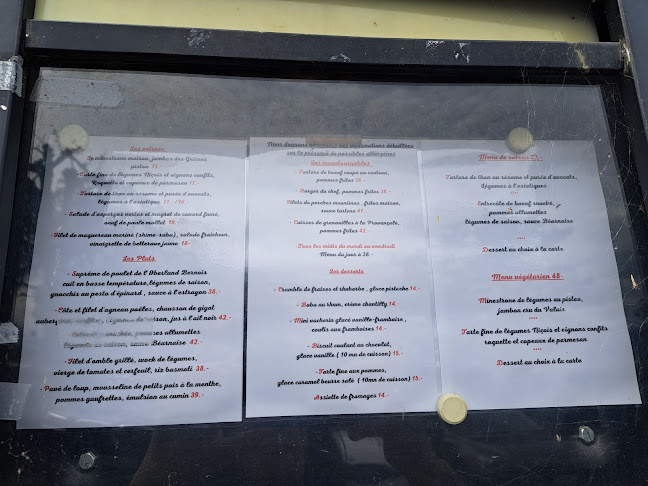 Les entrées
Le minestrone maison, jambon des Grisons
pistou
- Tarte fine de légumes Niçois et oignons confits,
Roquette et copeaux de parmesan 17.-
- Tartare de thon au sésame et purée d'avocats,
légumes à l'asiatique 21 /
- Salade d'asperges vertes et magret de canard fumé,
œuf de poule mollet 19.-
- Filet de maquereau mariné (shime-saba), salade fraîcheur,
vinaigrette de betterave jaune 18-
Les Plats.
- Suprême de poulet de l'Oberland Bernois
cuit en basse température, légumes de saison,
gnocchis au pesto d'épinard, sauce à l'estragon 38.-
- Côte et filet d'agneau poêlés, chausson de gigot
de saison, jus à l'ail noir 42.-
pommes allumettes
de saison, sauce Béarnaise 42.-
- Filet d'omble grillé, wock de légumes,
vierge de tomates et cerfeuil, riz basmati 38.-
- Pavé de loup, mousseline de petits pois à la menthe,
pommes gaufrettes, émulsion au cumin 39.-
Nous donnons volontiers des informations détaillées
sur la présence de possibles allergènes
Les incontournables
- Tartare de bœuf coupé au couteau,
pommes frites
- Burger du chef, pommes frites
- Filets de perches meunières, frites maison,
sauce tartare 41.-
- Cuisses de grenouilles à la Provençale,
pommes frites 42.-
Tous les midis du mardi au vendredi
Menu du jour à 28 -
Les desserts
- Crumble de fraises et rhubarbe, glace pistache 14.-
- Baba au rhum, crème chantilly 14.-
- Mini vacherin glacé vanille-framboise,
coulis aux framboises 14.-
- Biscuit coulant au chocolat,
glace vanille ( 10 mn de cuisson) 15.-
- Tarte fine aux pommes,
glace caramel beurre salé ( 10mn de cuisson) 15.-
- Assiette de fromages 14.-
Menu de saison
Tartare de thon au sésame et purée d'avocats,
Légumes à l'asiatique
****
Entrecôte de bœuf
pommes allumettes
légumes de saison, sauce Béarnaise
****
Dessert au choix à la carte
Menu végétarien 48-
Minestrone de légumes au pistou,
jambon cru du Valais
****
Tarte fine de légumes Niçois et oignons confits
roquette et copeaux de parmesan
****
Dessert au choix à la carte